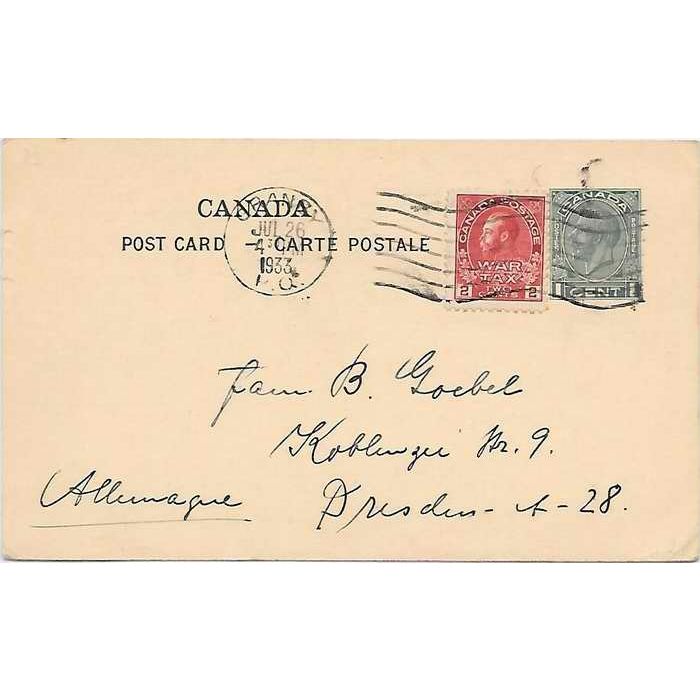 CANADA
POST CARD — CARTE POSTALE
GRANBY
JUL 26
4 PM
1933
P.Q.
CANADA POSTAGE
WAR
TAX
2 TWO CENTS 2
CANADA
1 CENT 1
Fam. B. Goebel
Koblenzer Str. 9.
Allemagne
Dresden-A-28.